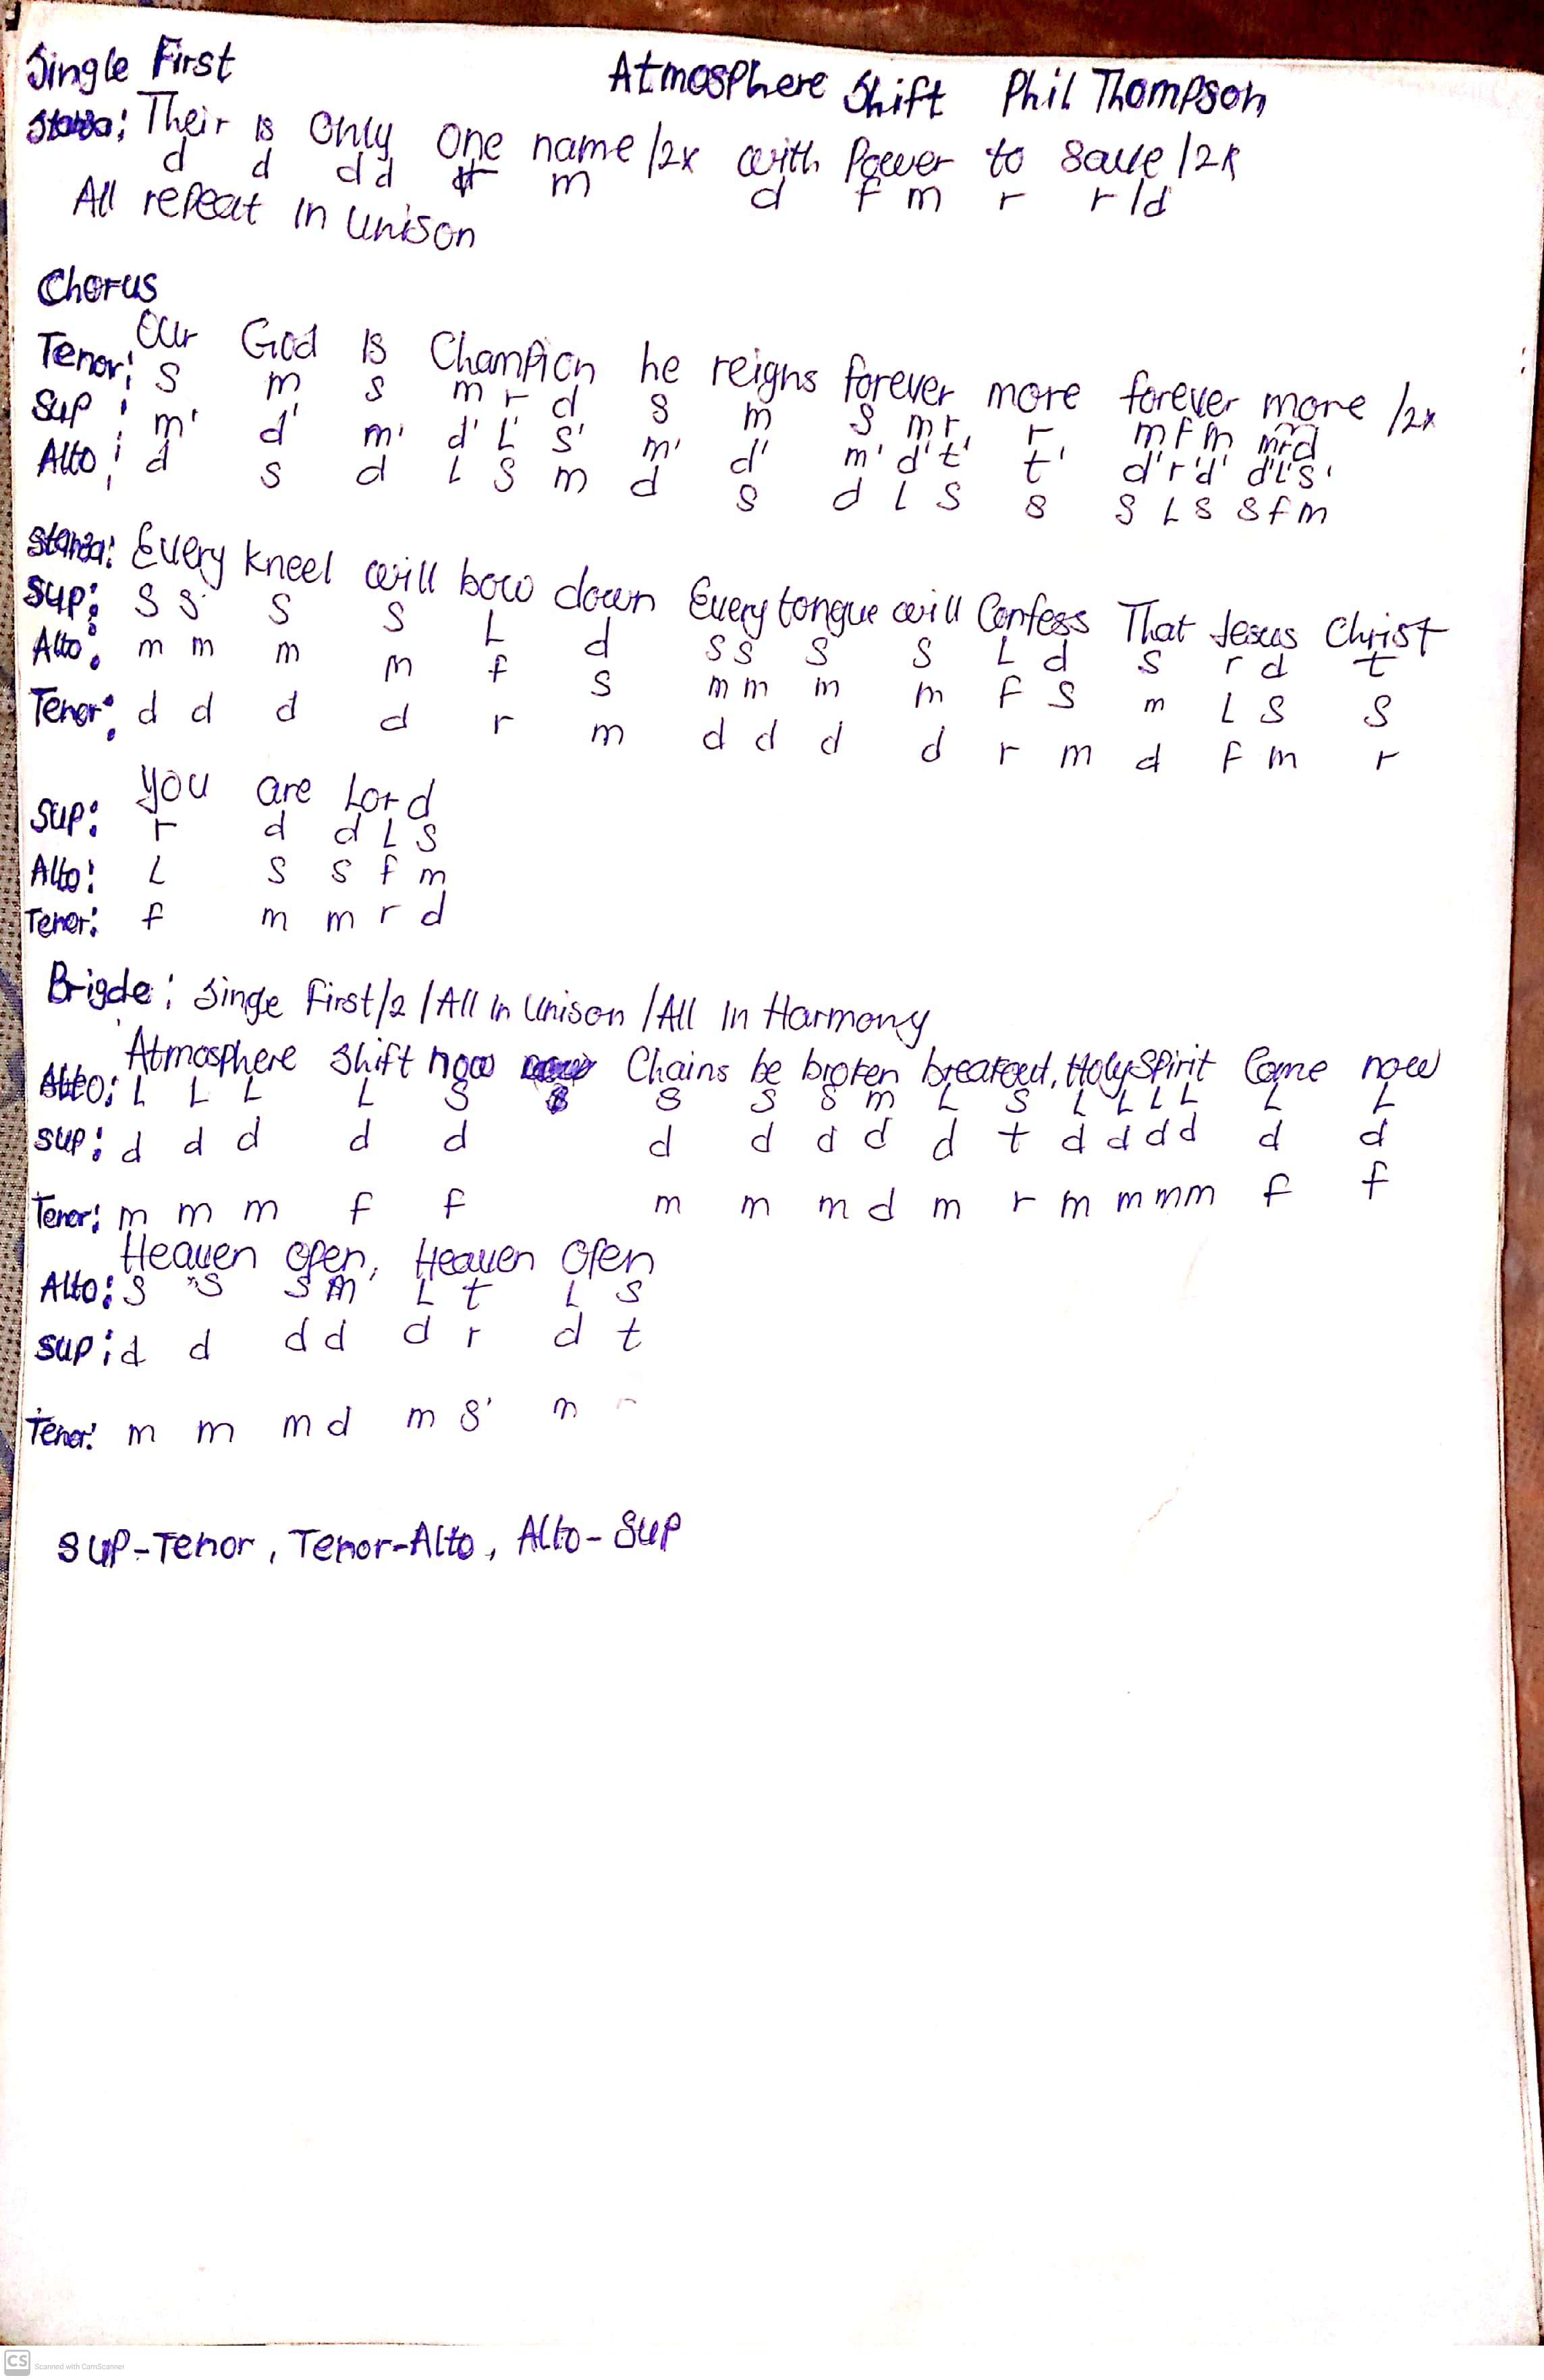 Single First
Atmosphere Shift Phil Thompson
Stanza: Their is only one name /2x with Power to save /2x
d d d d r m d f m r r /d
All repeat in unison
Chorus
Our God is Champion he reigns forever more forever more /2x
Tenor: s m s m r d s m s m r r m f m m r d
Sup: m' d' m' d' L' s' m' d' m' d' t' t' d' r' d' d' L' s'
Alto: d s d L s m d s d L s s s L s s f m
Stanza: Every kneel will bow down Every tongue will Confess That Jesus Christ
Sup: s s s s L d s s s s L d s r d t
Alto: m m m m f s m m m m f s m L s s
Tenor: d d d d r m d d d d r m d f m r
You are Lord
Sup: r d d L s
Alto: L s s f m
Tenor: f m m r d
Brigde: Singe First/2 /All in Unison /All In Harmony
Atmosphere Shift now Chains be broken breakout, Holy Spirit Come now
Alto: L L L L s s s s m L s L L L L L L
Sup: d d d d d d d d d d t d d d d d d
Tenor: m m m f f m m m d m r m m m m f f
Heaven open, Heaven Open
Alto: s s s m L t L s
Sup: d d d d d r d t
Tenor: m m m d m s' m
Sup-Tenor, Tenor-Alto, Alto-Sup
CS Scanned with CamScanner